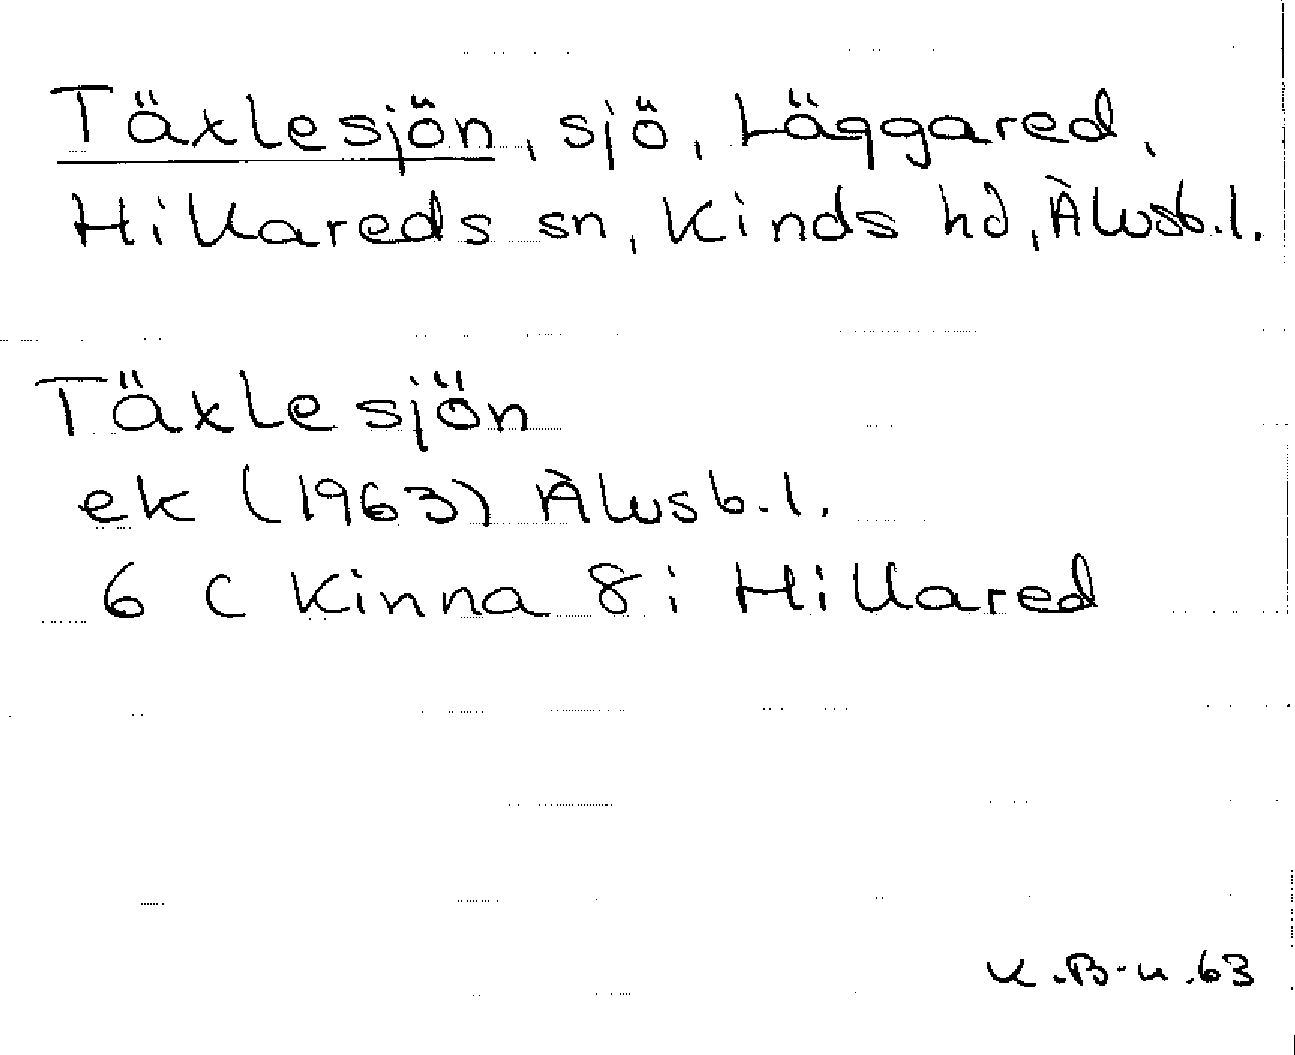 Täxlesjön, sjö, Häggared,
Hillareds sn, Kinds hd, Älvsb.l.
Täxlesjön
ek (1963) Älvsb.l.
6 C Kinna 8 i Hillared
K.B-n.63